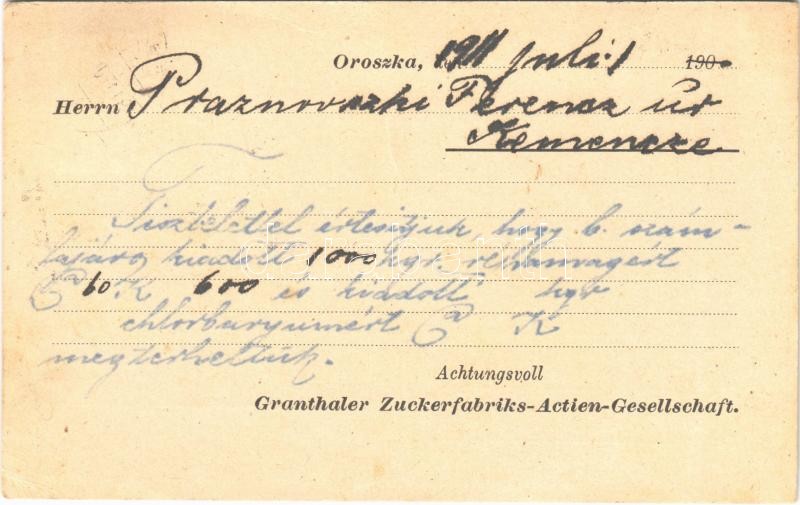 Oroszka, 1911 juli. 1 190
Herrn Praznovszki Ferencz úr
Kemencze
Tisztelettel értesitjük, hogy b. szám-
lájára kiadott 1000 kgr. répamagért
à 60 K 600 és kiadott kgr
chlorbaryumért à K
megterheltük.
Achtungsvoll
Granthaler Zuckerfabriks-Actien-Gesellschaft.